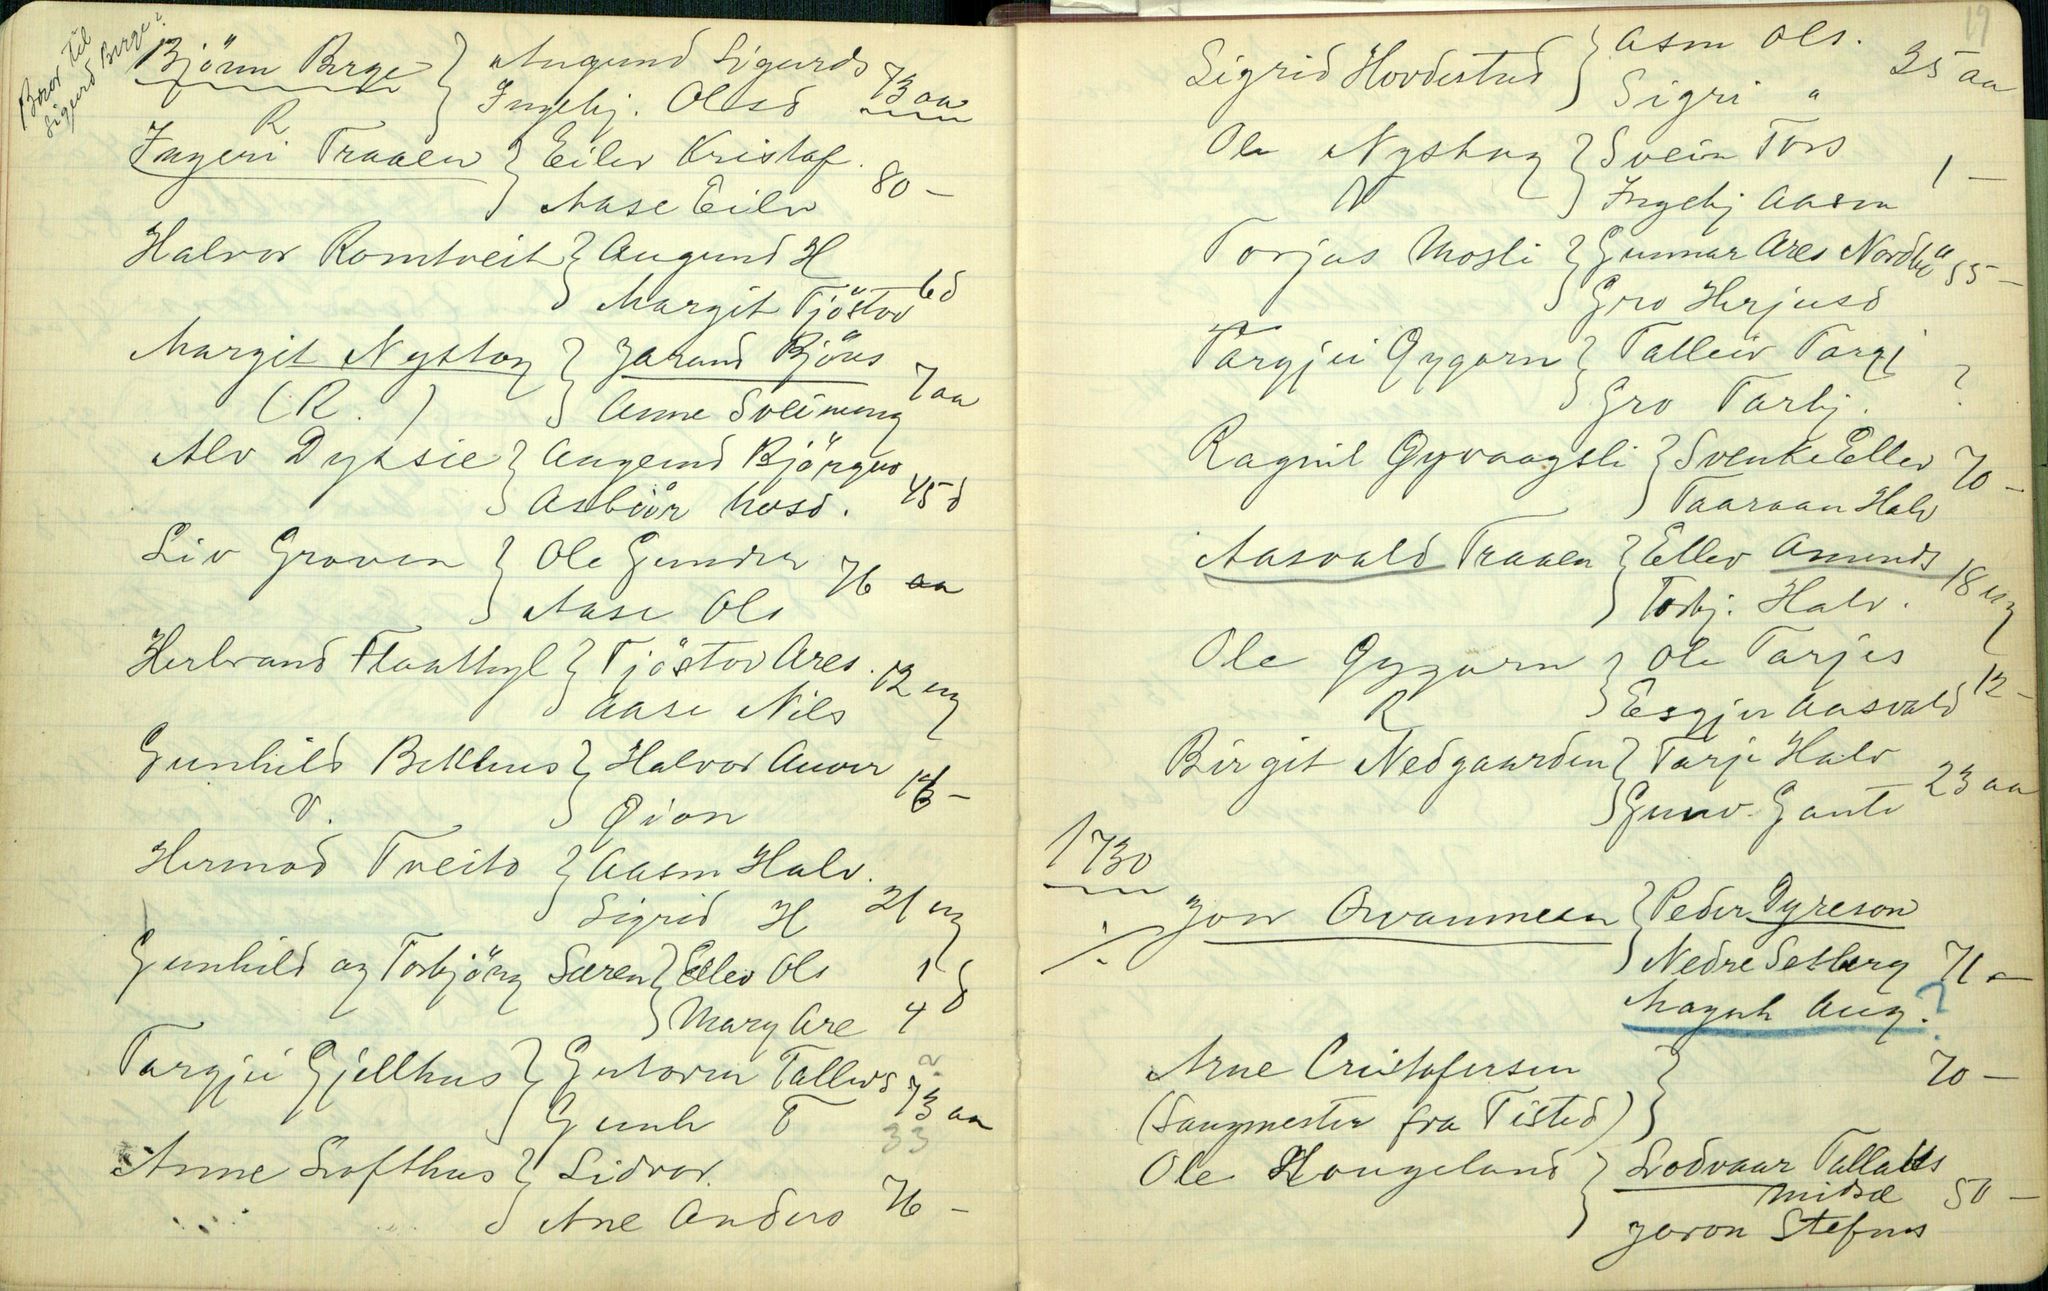 Boror til
Sigurd Berge?
Björn Berge } Augund Sigurds
R Ingebj. Olsd 73 aa
Ingeri Traaen } Eilev Kristof. 80 –
Aase Eilev
Halvor Romtveit } Augund H
Margit Tjöstov 6 d
Margit Nystog } Jarand Björns 7 aa
(R.) Anne Sveinung
Alv Dyrsie } Augund Björguv
Asbiör Mosd. 45 d
Liv Groven } Ole Gunder 76 aa
Aase Ols
Herbrand Flaathyl } Tjöstov Ares. 12 ug
Aase Nils
Gunhild Bekhus } Halvor Auver –
V. Gion
Hermod Tveito } Aasm Halv.
Sigrid H 21 ug
Gunhild og Torbjörg Særen } Ellev Ols 1 d
Mary Are 4
Targjei Gjellhus } Gutorm Tallevs ?
Gunh T 73 aa
33
Anne Lofthus } Lidvor.
Ane Anders 76 –
19
Sigrid Hovdestad } Asm Ols. 35 aa
Sigri "
Ola Nystog } Svein Tors 1 –
N Ingebj Aasm
Torjus Mosli } Gunnar Ares Nordbö 55 –
Gro Herjusd
Targjei Gygarn } Talleiv Targj ?
Gro Tarbj.
Ragnil Gyvaagsli } Svenke Ellev 70 –
Taaraan Halv
Aasvald Traaen } Ellev Amunds 18 ug
Torbj. Halv.
Ole Gygarn } Ole Tarjes 12 –
R Esgjer Aasvald
Birgit Nedgaarden } Tarje Halv 23 aa
Gunv. Gaute
1730
⁒ Jon Orvanmeen } Peder Dyreson
Nedre Setberg 71 a
Magnh Aug. ?
Arne Cristofersen } 70 –
(Saugmester fra Tisted)
Ole Haugeland } Lodvaar Tallaks
midsæ 50 –
Joron Stefns